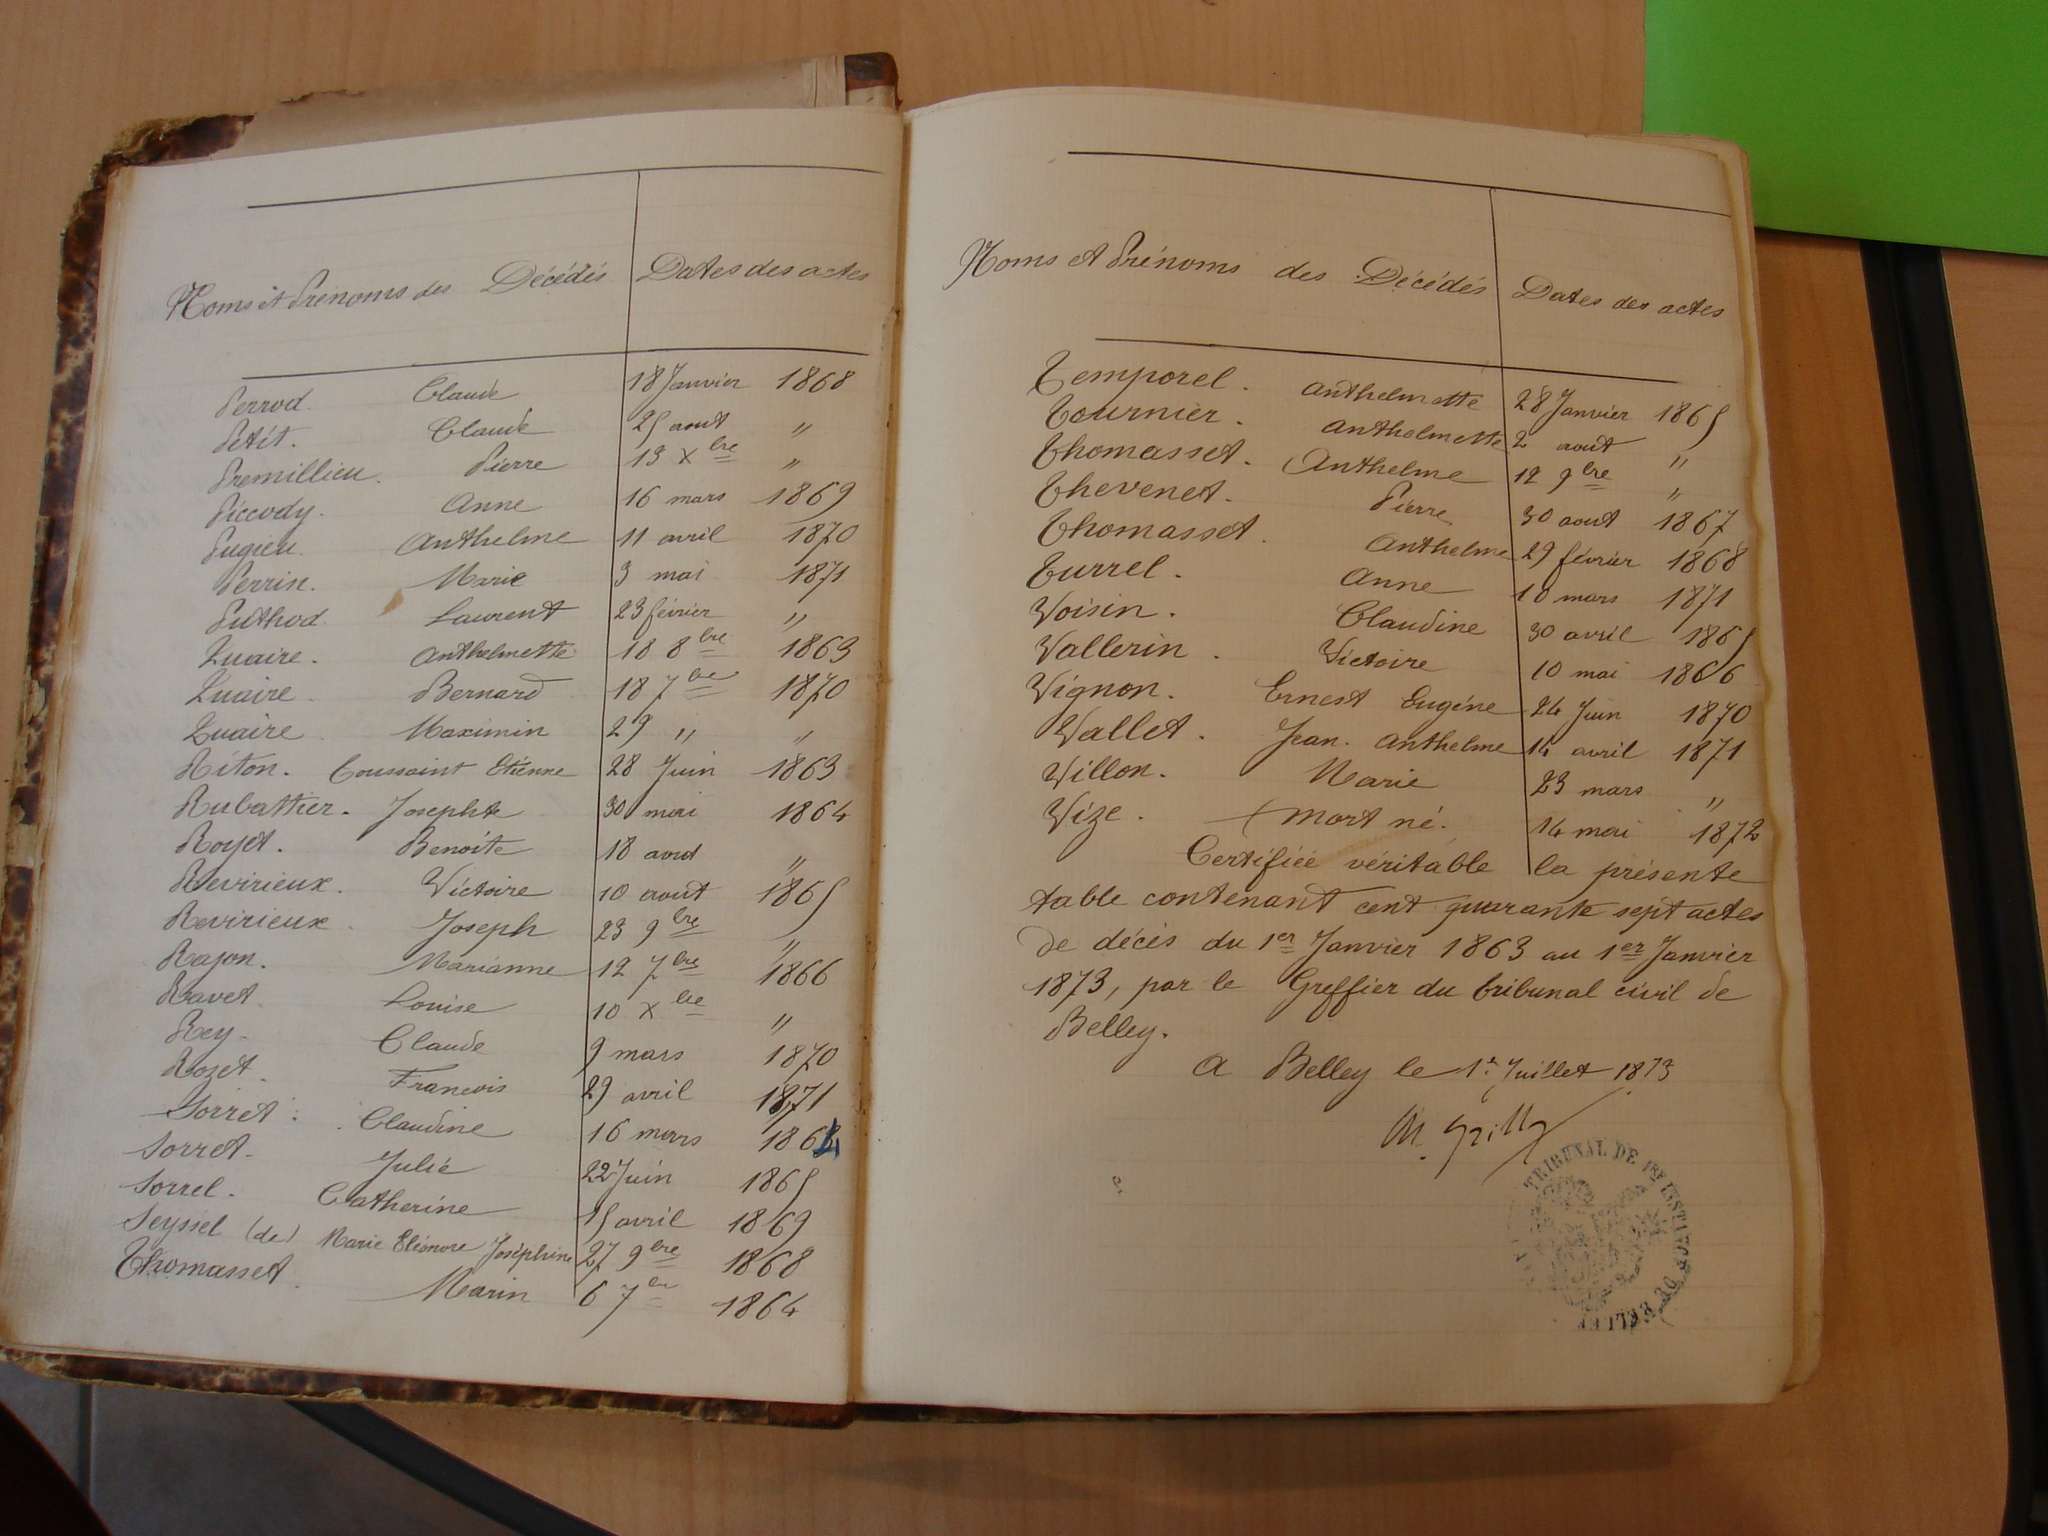 Noms et Prénoms des Décédés Dates des actes
Perrod. Claude 18 Janvier 1868
Petit. Claude 25 aout "
Premillieu. Pierre 13 Xbre "
Piccody. Anne 16 mars 1869
Pugieu. Anthelme 11 avril 1870
Perrin. Marie 3 mai 1871
Puthod. Laurent 23 février "
Quaire. Anthelmette 18 8bre 1863
Quaire. Bernard 18 7bre 1870
Quaire. Maximin 29 " "
Riton. Toussaint Etienne 28 Juin 1863
Rubattier. Josephte 30 mai 1864
Royet. Benoite 18 aout "
Revirieux. Victoire 10 aout 1865
Revirieux. Joseph 23 9bre "
Rajon. Marianne 12 7bre 1866
Ravet. Louise 10 Xbre "
Rey. Claude 9 mars 1870
Rozet. Francois 29 avril 1871
Sorret. Claudine 16 mars 1864
Sorret. Julie 22 Juin 1865
Sorrel. Catherine 15 avril 1869
Seyssel (de) Marie Eléonore Joséphine 27 9bre 1868
Thomasset. Marin 6 7bre 1864
Noms et Prénoms des Décédés Dates des actes
Temporel. Anthelmette 28 Janvier 1865
Tournier. Anthelmette 2 aout "
Thomasset. Anthelme 12 9bre "
Thevenet. Pierre 30 aout 1867
Thomasset. Anthelme 29 février 1868
Turrel. Anne 10 mars 1871
Voisin. Claudine 30 avril 1865
Vallerin. Victoire 10 mai 1866
Vignon. Ernest Eugéne 24 Juin 1870
Vallet. Jean. Anthelme 14 avril 1871
Villon. Marie 23 mars "
Vize. (mort né. 14 mai 1872
Certifiée véritable la présente
table contenant cent quarante sept actes
de décès du 1er Janvier 1863 au 1er Janvier
1873, par le Greffier du tribunal civil de
Belley.
A Belley le 1er Juillet 1873
TRIBUNAL DE 1RE INSTANCE DE BELLEY